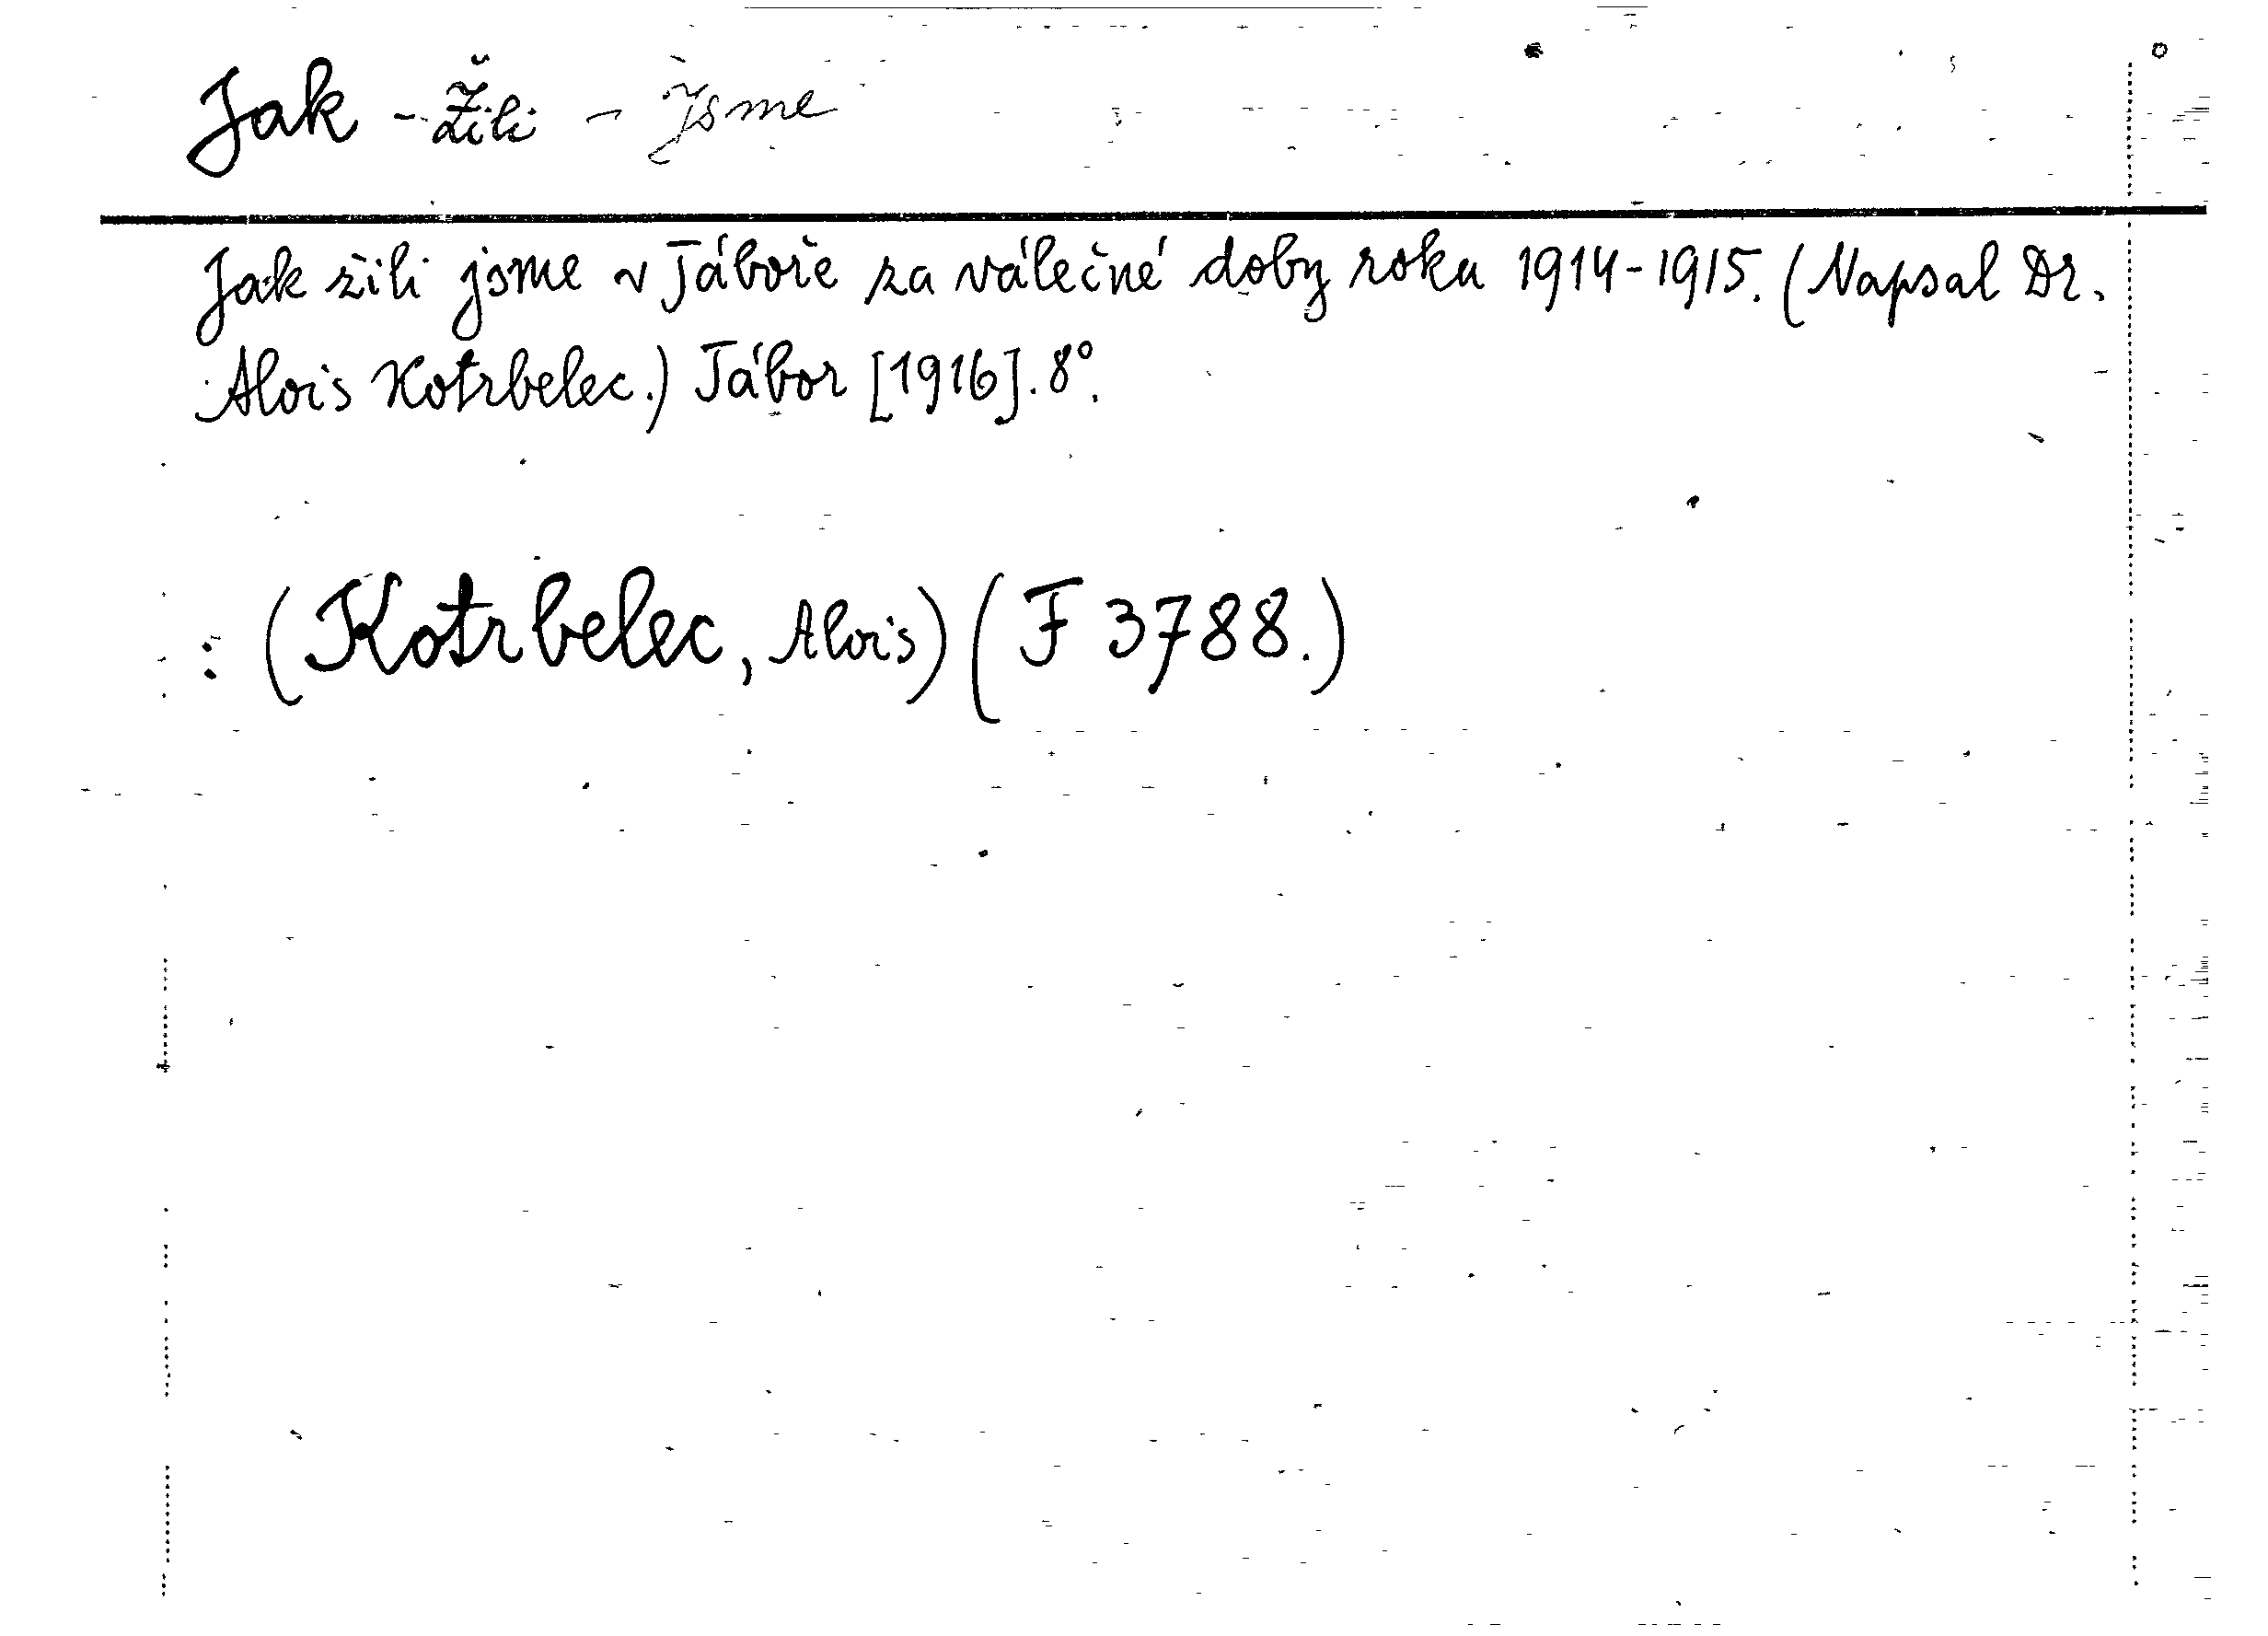 Jak - Žili - Jsme
Jak žili jsme v Táboře za válečné doby roku 1914-1915. (Napsal Dr.
Alois Kotrbelec.) Tábor [1916]. 8°.
: (Kotrbelec, Alois) (F 3788.)